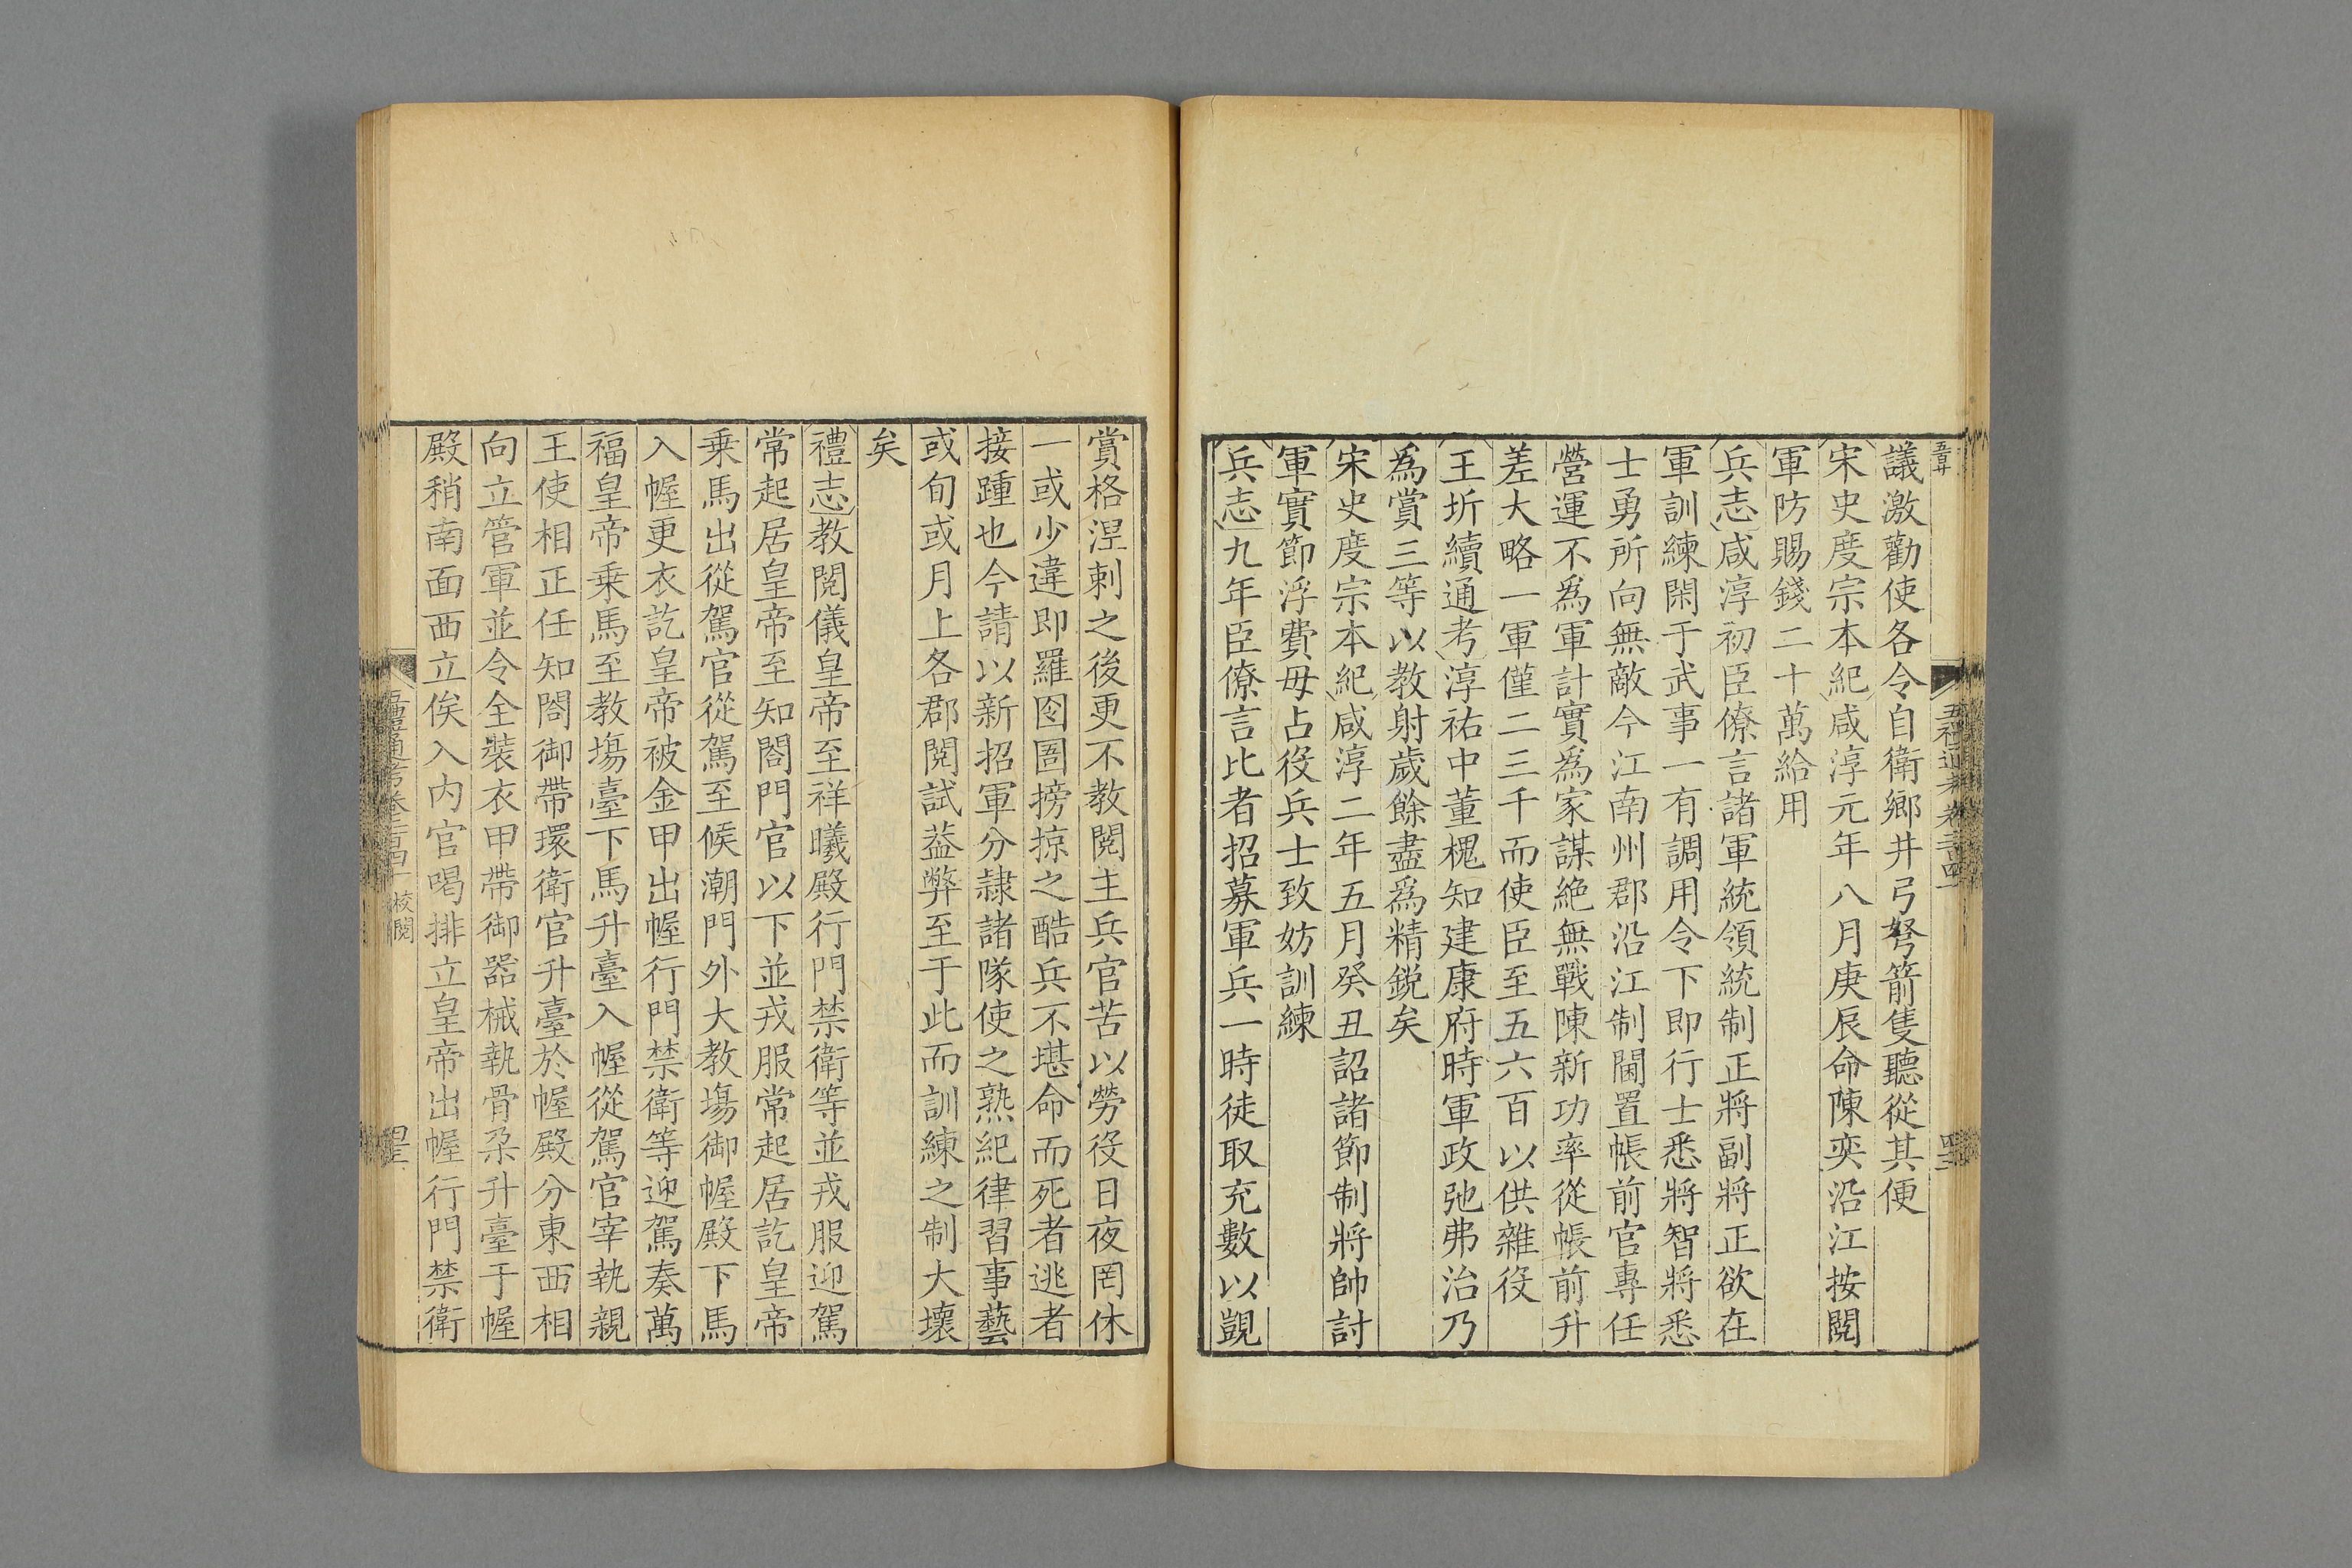 議激勸使各令自衛鄉井弓弩箭隻聽從其便
宋史度宗本紀咸淳元年八月庚辰命陳奕沿江按閱
軍防賜錢二十萬給用
兵志咸淳初臣僚言諸軍統領統制正將副將正欲在
軍訓練閑于武事一有調用令下即行士悉將智將悉
士勇所向無敵今江南州郡沿江制閫置帳前官專任
營運不爲軍計實爲家謀絶無戰陳新功率從帳前升
差大略一軍僅二三千而使臣至五六百以供雜役
王圻續通考淳祐中董槐知建康府時軍政弛弗治乃
爲賞三等以教射歲餘盡爲精鋭矣
宋史度宗本紀咸淳二年五月癸丑詔諸節制將帥討
軍實節浮費毋占役兵士致妨訓練
兵志九年臣僚言比者招募軍兵一時徒取充數以覬
賞格涅刺之後更不教閱主兵官苦以勞役日夜罔休
一或少違即羅囹圄搒掠之酷兵不堪命而死者逃者
接踵也今請以新招軍分隷諸隊使之熟紀律習事藝
或旬或月上各郡閱試葢弊至于此而訓練之制大壞
矣
禮志教閱儀皇帝至祥曦殿行門禁衛等並戎服迎駕
常起居皇帝至知閤門官以下並戎服常起居訖皇帝
乗馬出從駕官從駕至候潮門外大教場御幄殿下馬
入幄更衣訖皇帝被金甲出幄行門禁衛等迎駕奏萬
福皇帝乗馬至教場臺下馬升臺入幄從駕官宰執親
王使相正任知閤御帶環衛官升臺於幄殿分東西相
向立管軍並令全裝衣甲帶御器械執骨朶升臺于幄
殿稍南面西立俟入内官喝排立皇帝出幄行門禁衛
校閱